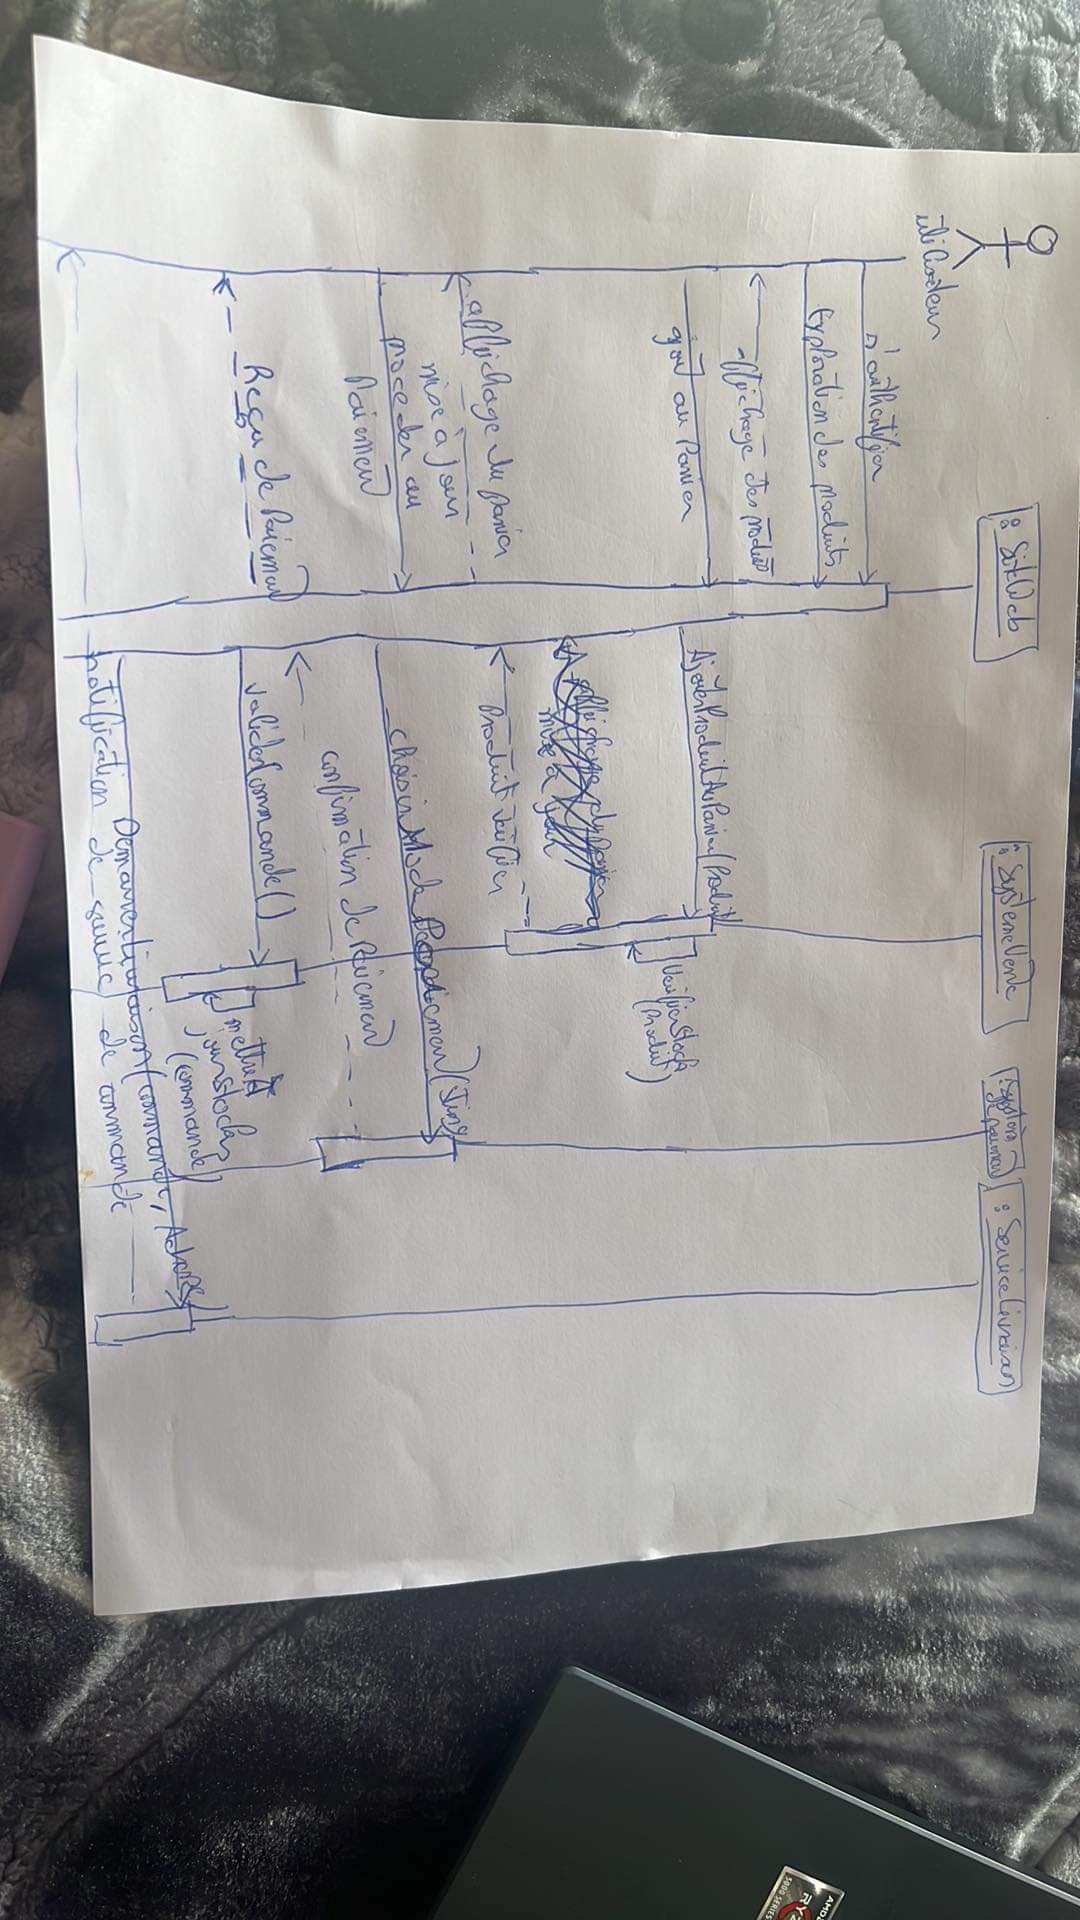 : SiteWeb
: SystemeVente
: Système
de paiement
: ServiceLivraison
utilisateur
s'authentifier
Exploration des produits
affichage des produits
ajout au Panier
AjouterProduitAuPanier(Produit
VerifierStock
(Produit)
affichage du panier
mise à jour
Produit verifier
affichage du panier
mise à jour
proceder au
Paiement
choisirMode Paiement(String
confirmation de Paiement
Reçu de Paiement
valider Commande()
mettreA
jourStock
(commande)
DemarrerLivraison(commande, Adresse)
notification de suivie de commande
AMD
RYZ
5000 SERIES